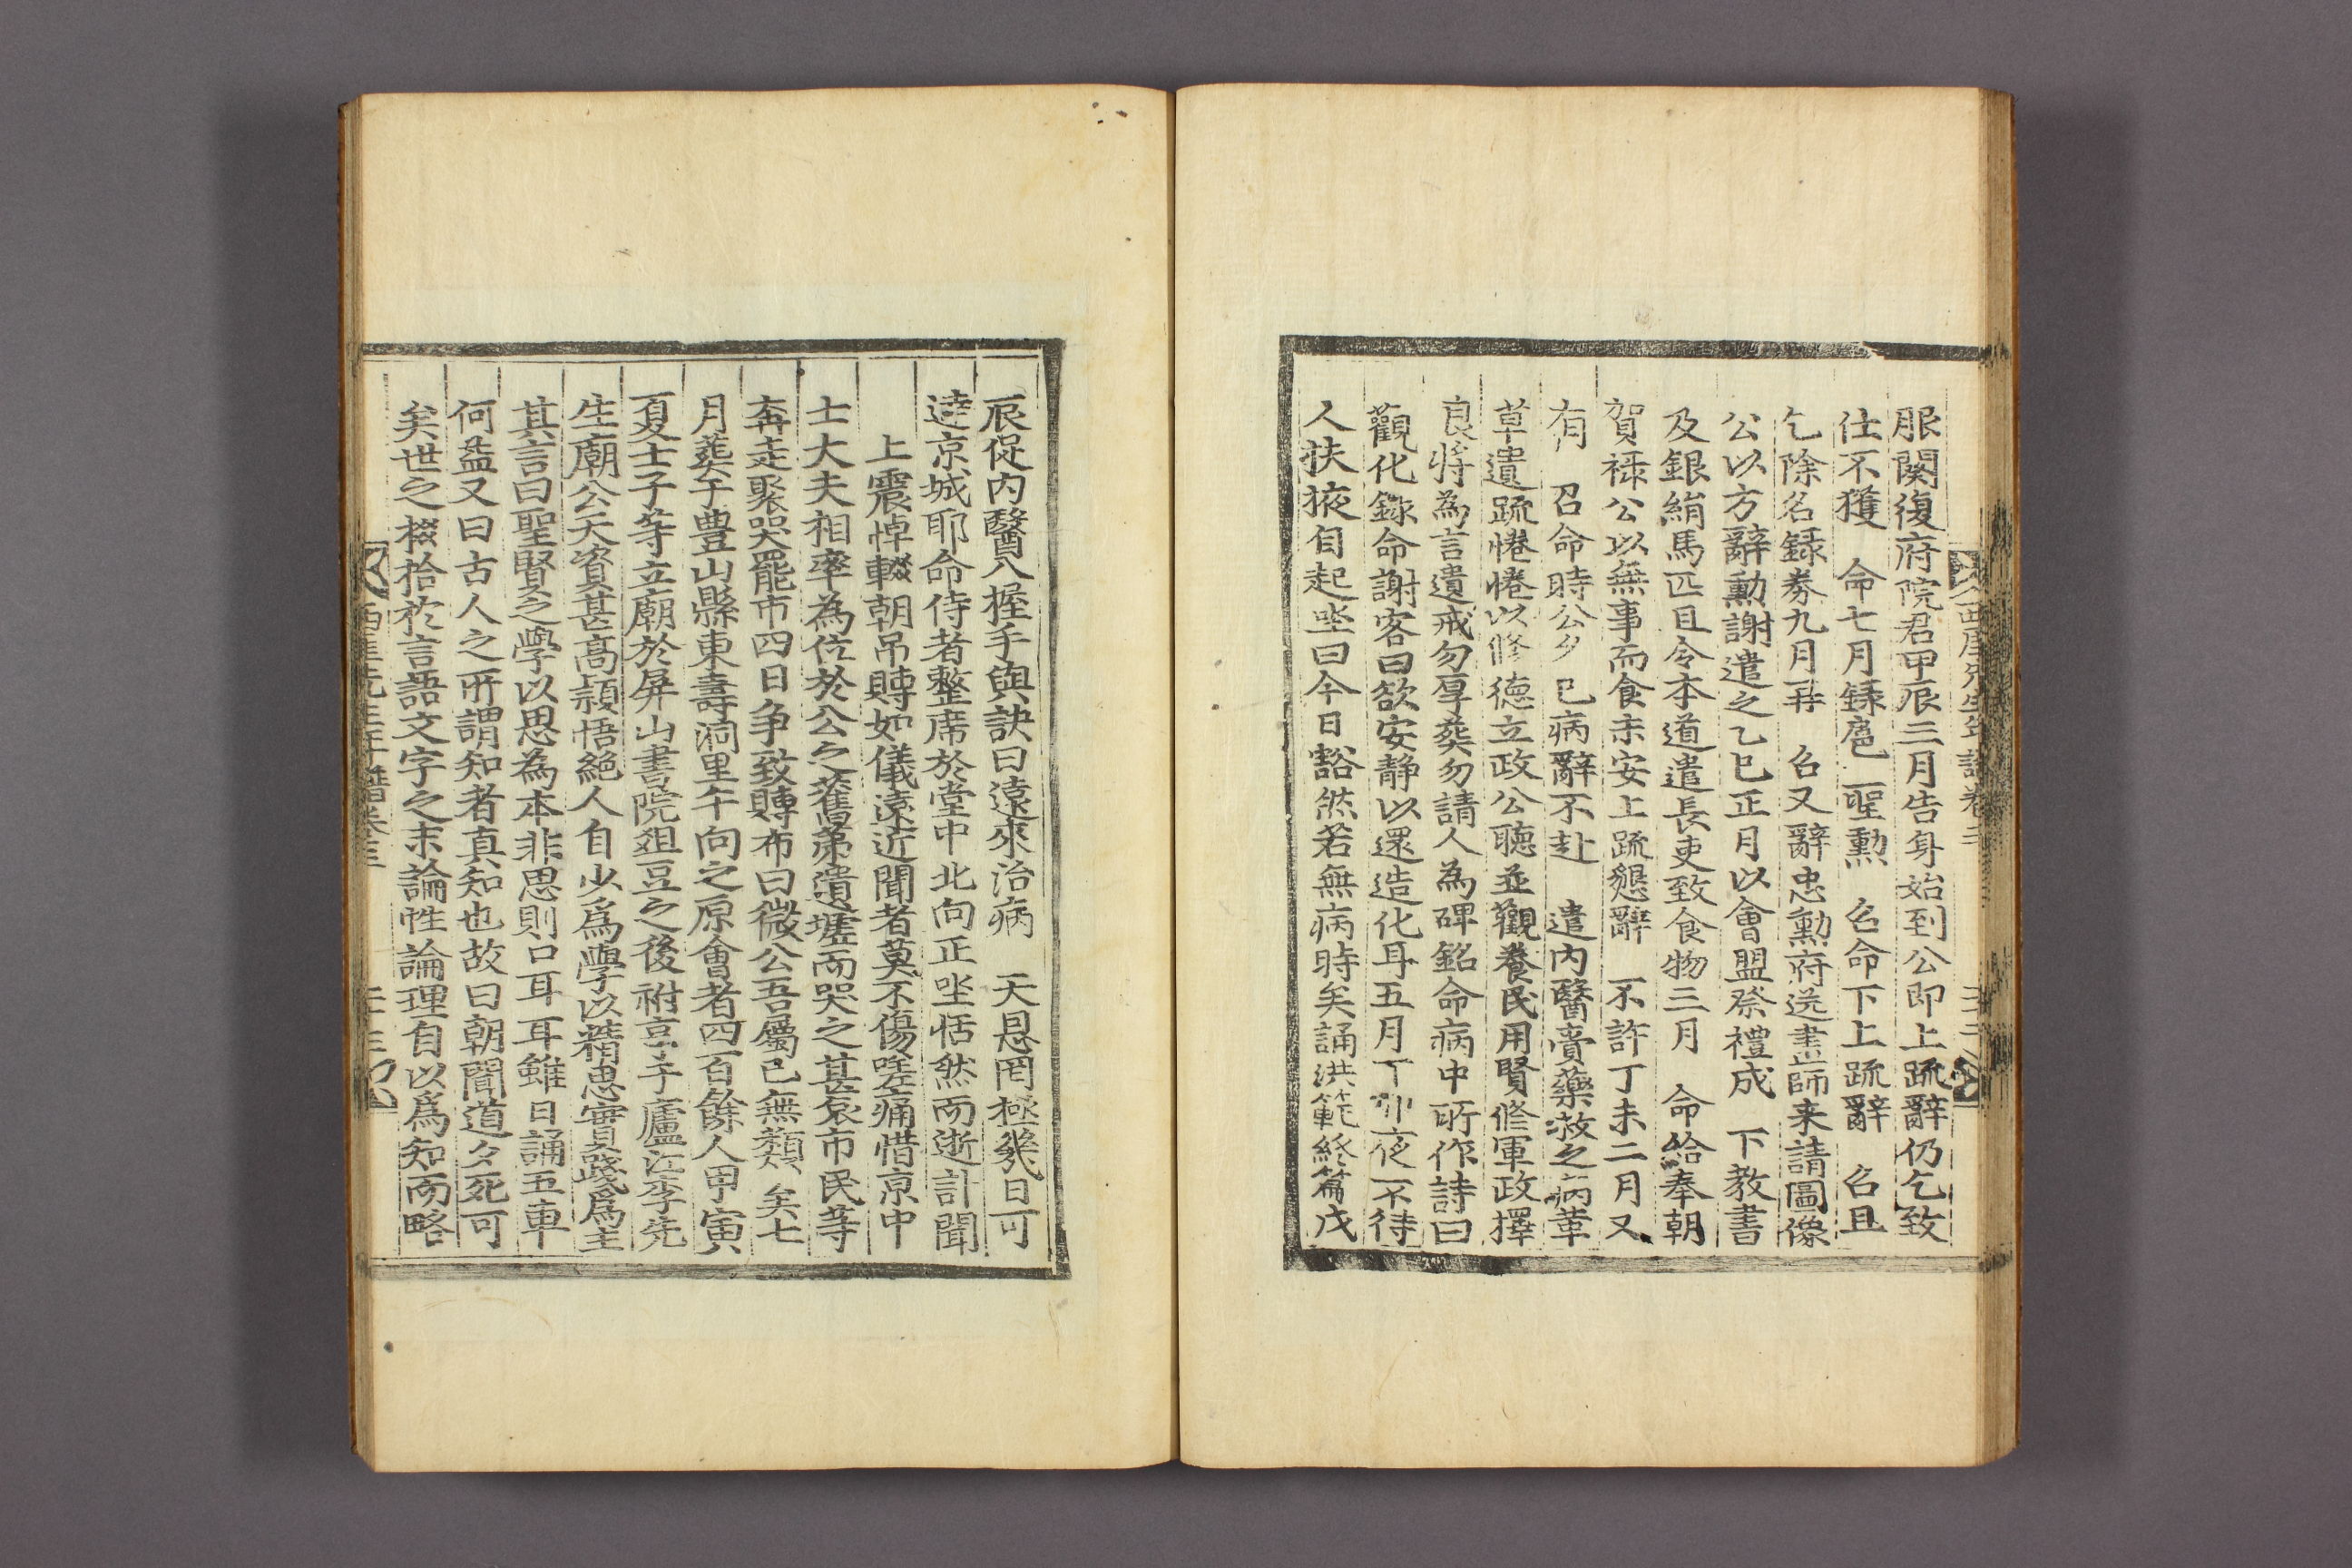 西厓先生年譜卷三
服闋復府院君甲辰三月告身始到公即上疏辭仍乞致
仕不獲 命七月錄扈 聖勳 召命下上疏辭 召且
乞除名錄券九月再 召又辭忠勳府送畫師来請圖像
公以方辭勳謝遣之乙巳正月以會盟祭禮成 下教書
及銀絹馬匹且令本道遣長吏致食物三月 命給奉朝
賀祿公以無事而食未安上疏懇辭 不許丁未二月又
有 召命時公夕 已病辭不赴 遣内醫賫藥救之病革
草遺疏惓惓以修德立政公聽並觀養民用賢修軍政擇
良將為言遺戒勿厚葬勿請人為碑銘命病中所作詩曰
觀化錄命謝客曰欲安静以還造化耳五月丁卯夜不待
人扶掖自起坐曰今日豁然若無病時矣誦洪範終篇戊
辰促内醫入握手與訣曰遠來治病 天恩罔極幾日可
達京城耶命侍者整席於堂中北向正坐恬然而逝訃聞
上震悼輟朝吊賻如儀遠近聞者莫不傷嗟痛惜京中
士大夫相率為位於公之舊第遺墟而哭之甚哀市民等
奔走聚哭罷市四日争致賻布曰微公吾屬已無類矣七
月葬于豊山縣東壽洞里午向之原會者四百餘人甲寅
夏士子等立廟於屏山書院爼豆之後祔享于廬江李先
生廟公天資甚髙穎悟絶人自少爲學以精思實踐爲主
其言曰聖賢之學以思為本非思則口耳耳雖日誦五車
何益又曰古人之所謂知者真知也故曰朝聞道夕死可
矣世之掇拾於言語文字之末論性論理自以爲知而略
西厓先生年譜卷三